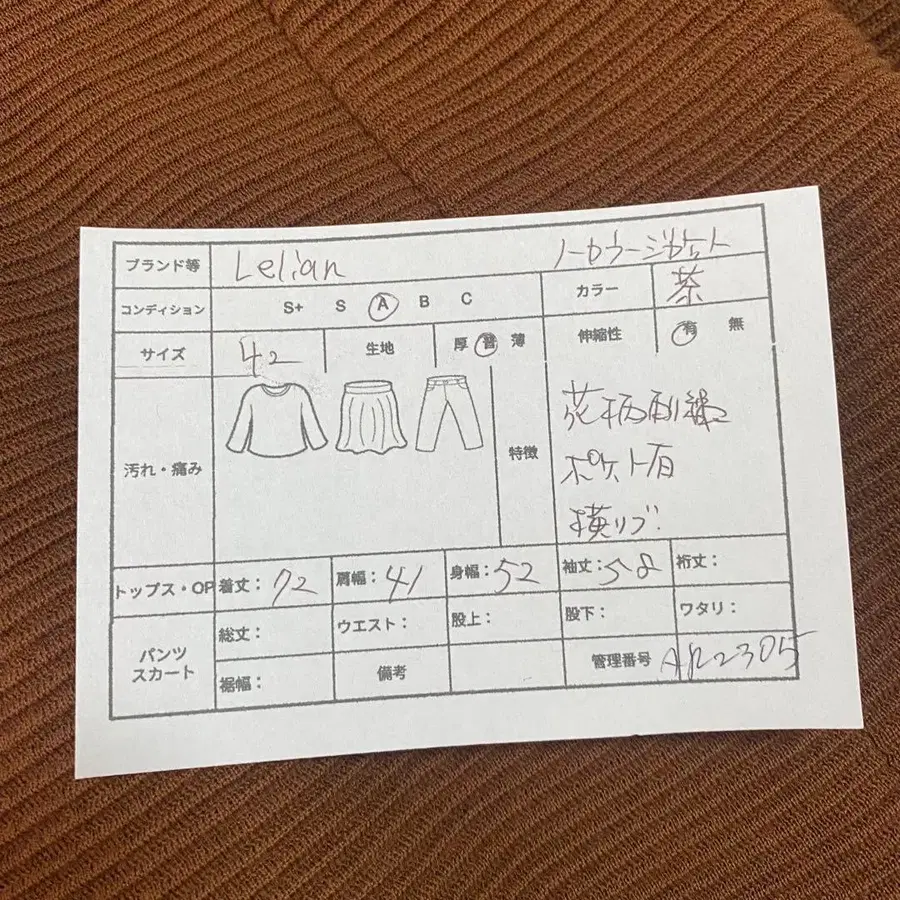 ブランド等 Lelian ノーカラージャケット
コンディション S+ S A B C カラー 茶
サイズ 42 生地 厚 普 薄 伸縮性 有 無
汚れ・痛み 特徴
花柄刺繍
ポケット有
横リブ
トップス・OP 着丈：72 肩幅：41 身幅：52 袖丈：58 裄丈：
パンツ スカート
総丈： ウエスト： 股上： 股下： ワタリ：
裾幅： 備考 管理番号 AR2305